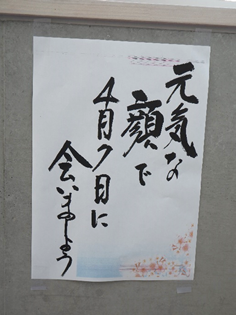 元気な
顔で
4月7日に
会いましょう